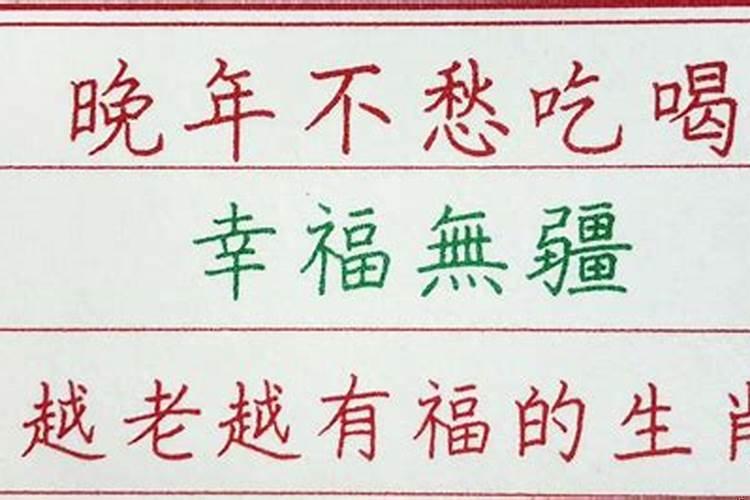 晚年不愁吃喝
幸福無疆
越老越有福的生肖